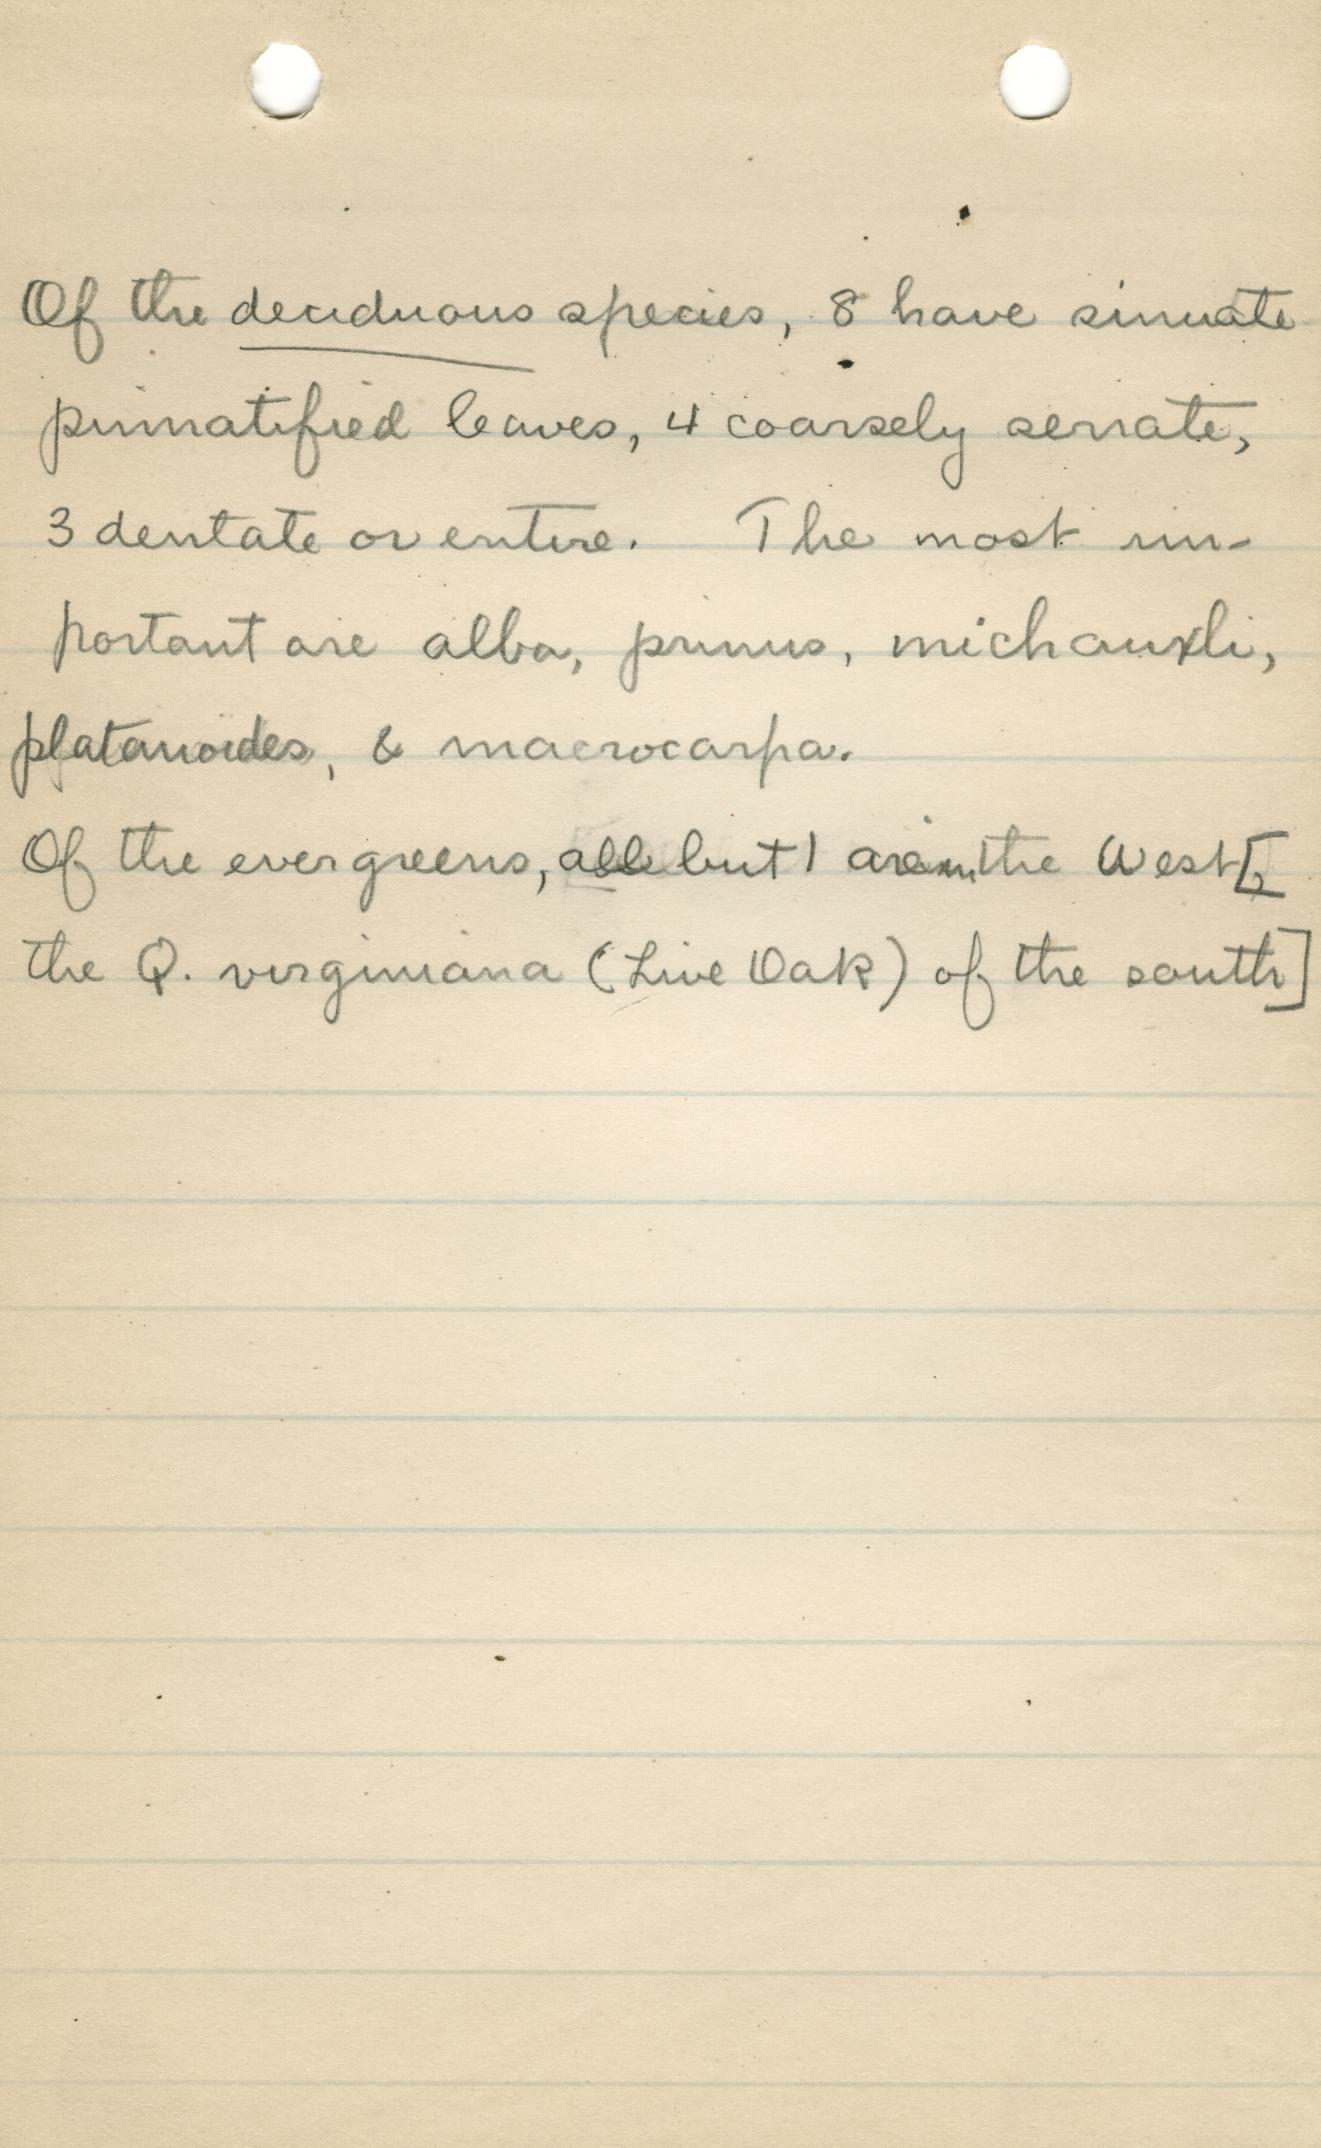 Of the deciduous species, 8 have sinuate
pinnatified leaves, 4 coarsely serrate,
3 dentate or entire. The most im-
portant are alba, prinus, michauxli,
platanoides, & macrocarpa.
Of the evergreens, all but 1 are in the West [,
the Q. virginiana (Live Oak) of the south]